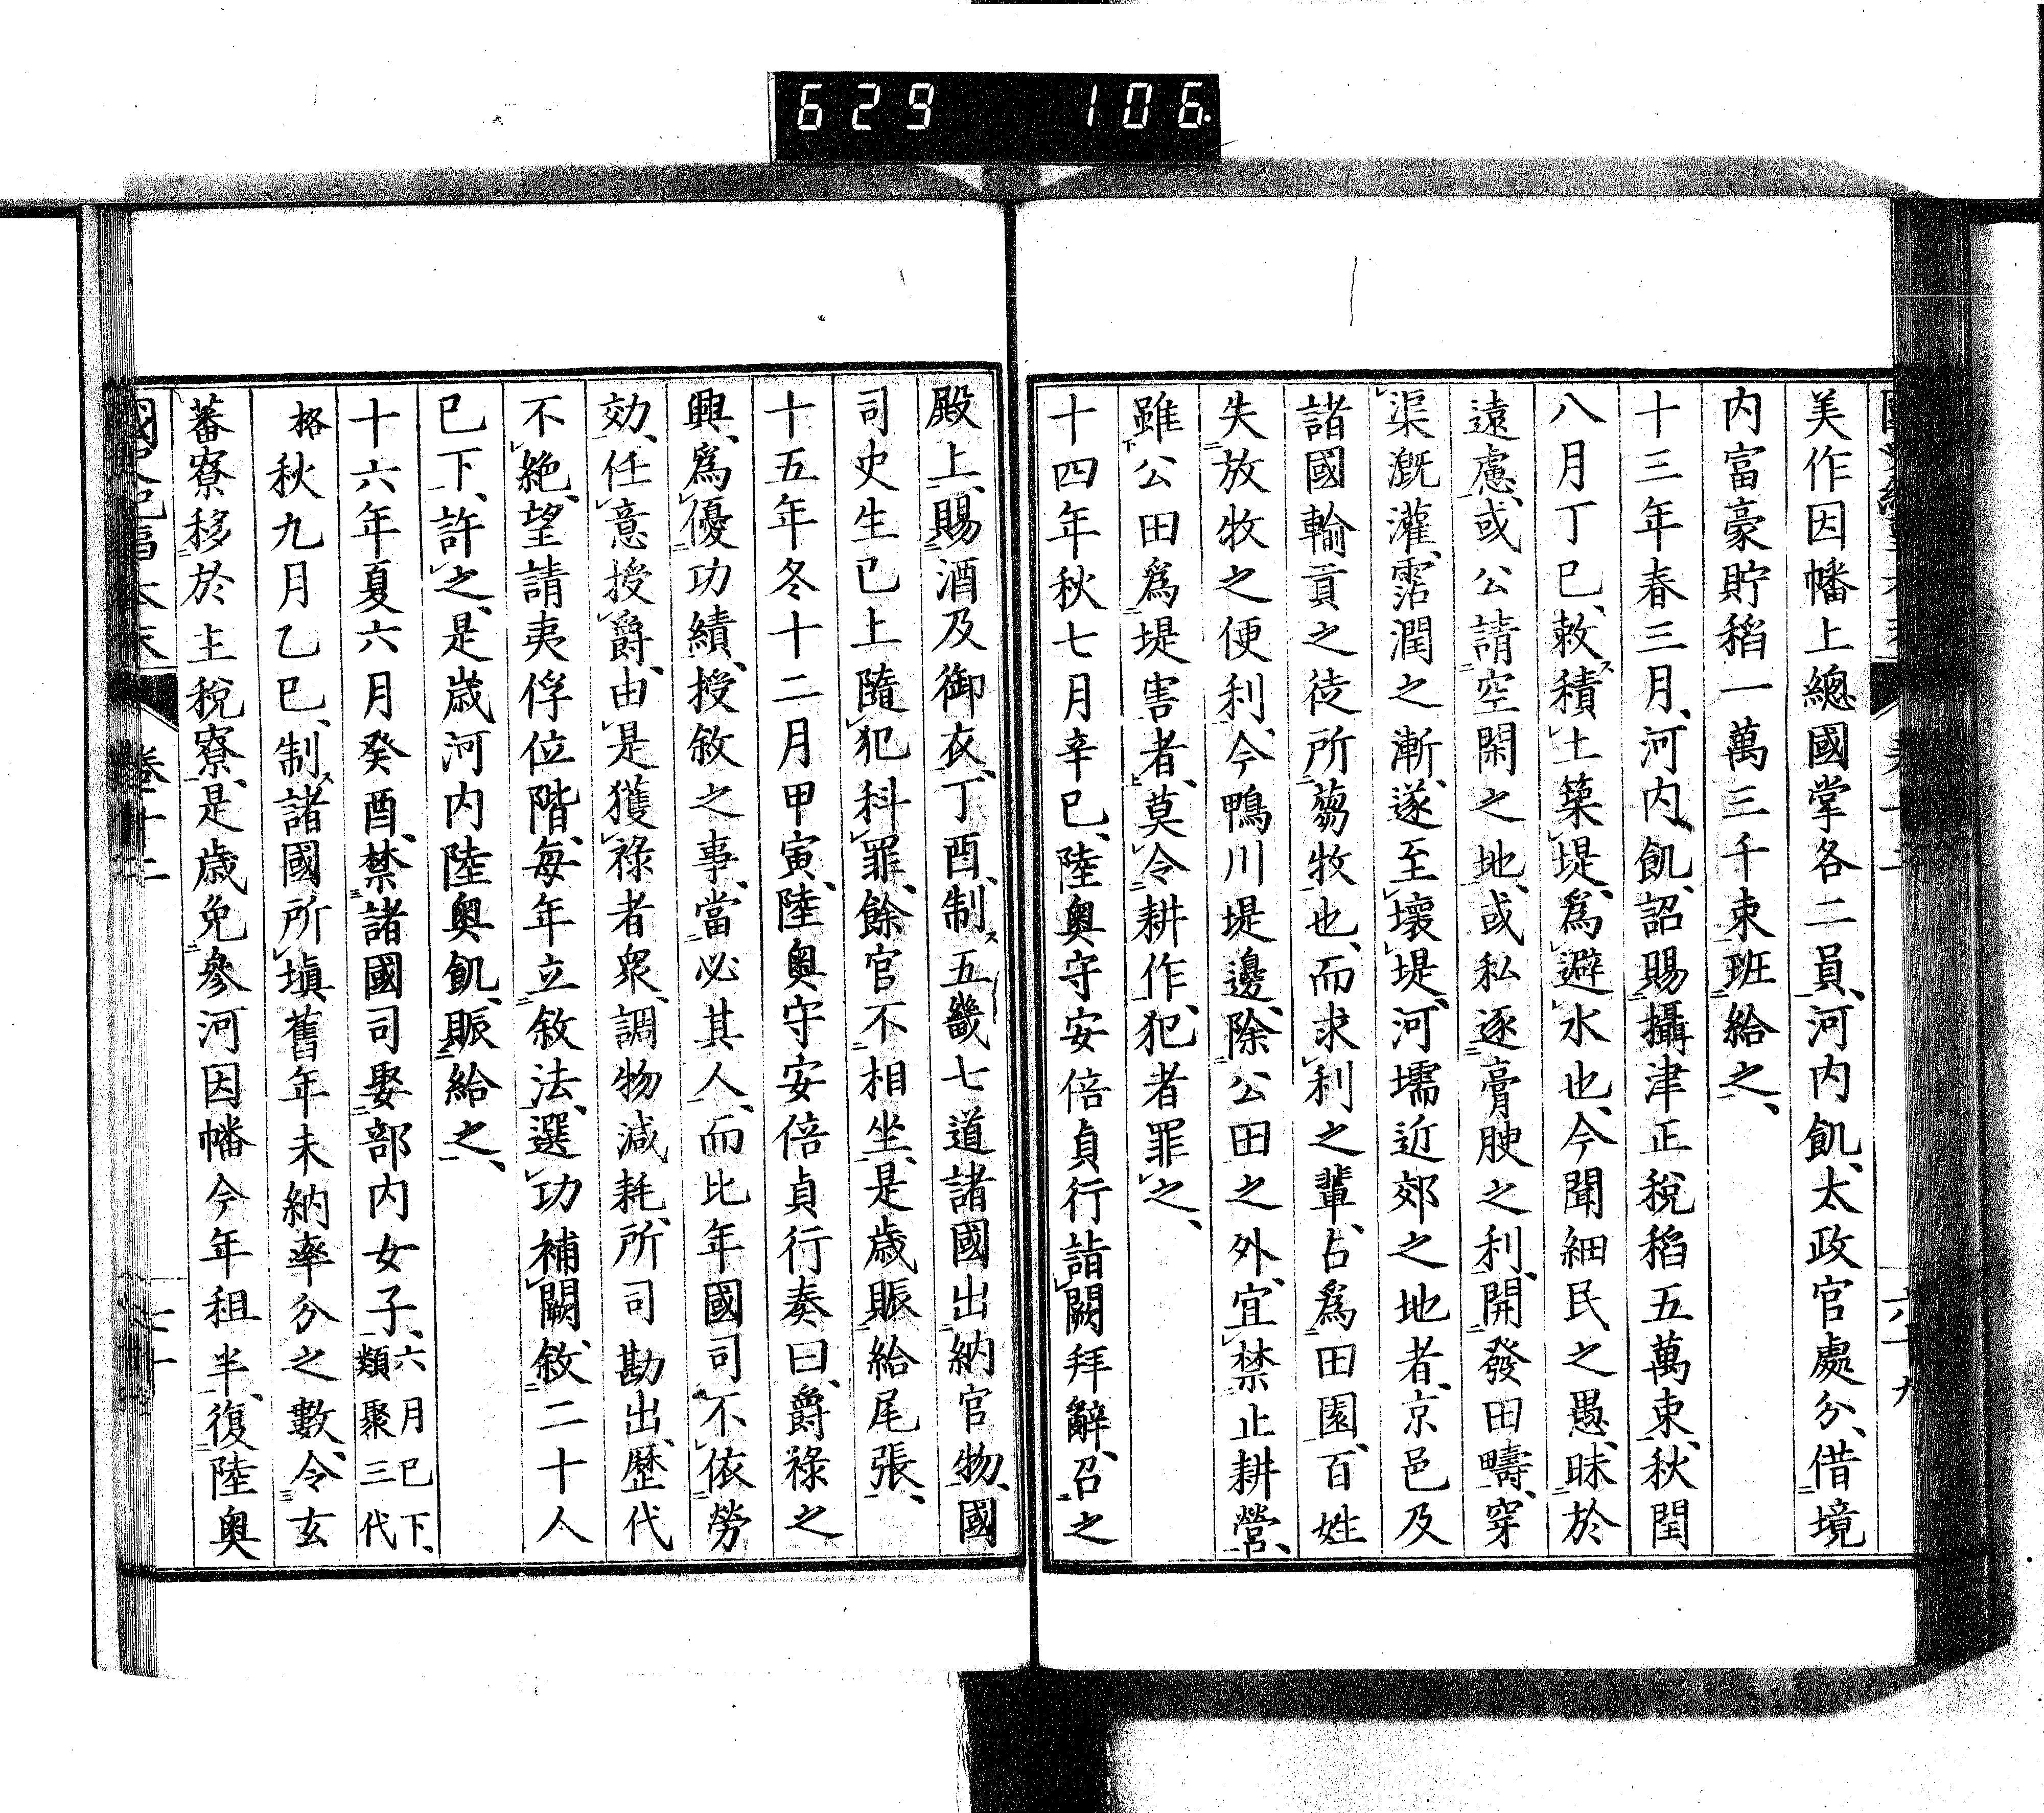 629 106
美作因幡上總國掌各二員、河内飢、太政官處分、借境
内富豪貯稻一萬三千束班給之、
十三年春三月、河内飢、詔賜攝津正稅稻五萬束、秋閏
八月丁巳、敕積土築堤、爲避水也、今聞細民之愚、昧於
遠慮、或公請空閑之地、或私逐膏腴之利、開發田疇、穿
渠漑灌、霑潤之漸、遂至壞堤、河壖近郊之地者、京邑及
諸國輸貢之徒所蒭牧也、而求利之輩、占爲田園、百姓
失放牧之便利、今鴨川堤邊、除公田之外、宜禁止耕營、
雖公田爲堤害者、莫令耕作、犯者罪之、
十四年秋七月辛巳、陸奥守安倍貞行詣闕拜辭、召之
殿上、賜酒及御衣、丁酉、制、五畿七道諸國出納官物、國
司史生已上隨犯科罪、餘官不相坐、是歲賑給尾張、
十五年冬十二月甲寅、陸奥守安倍貞行奏曰、爵祿之
興、爲優功績、授敘之事、當必其人、而比年國司不依勞
効、任意授爵、由是獲祿者衆、調物減耗、所司勘出、歷代
不絶、望請夷俘位階、每年立敘法、選功補闕、敘二十人
已下、許之、是歲河内陸奥飢、賑給之、
十六年夏六月癸酉、禁諸國司娶部内女子、六月已下、類聚三代
格秋九月乙巳、制、諸國所塡舊年未納率分之數、令玄
蕃寮移於主稅寮、是歲免參河因幡今年租半、復陸奥
卷十二